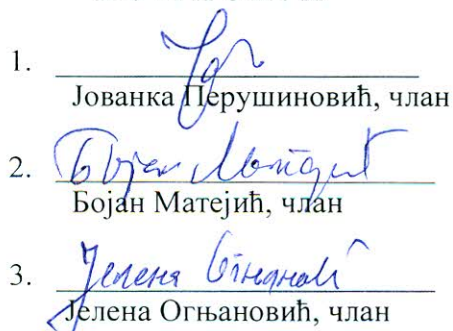 1.
Јованка Перушиновић, члан
2. Бојан Матејић
Бојан Матејић, члан
3. Јелена Огњановић
Јелена Огњановић, члан